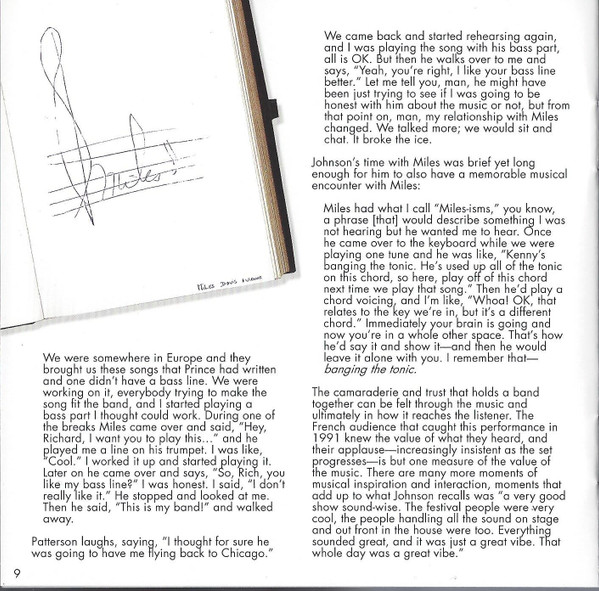 Miles!
MILES DAVIS
We were somewhere in Europe and they
brought us these songs that Prince had written
and one didn't have a bass line. We were
working on it, everybody trying to make the
song fit the band, and I started playing a
bass part I thought could work. During one of
the breaks Miles came over and said, "Hey,
Richard, I want you to play this..." and he
played me a line on his trumpet. I was like,
"Cool." I worked it up and started playing it.
Later on he came over and says, "So, Rich, you
like my bass line?" I was honest. I said, "I don't
really like it." He stopped and looked at me.
Then he said, "This is my band!" and walked
away.
Patterson laughs, saying, "I thought for sure he
was going to have me flying back to Chicago."
9
We came back and started rehearsing again,
and I was playing the song with his bass part,
all is OK. But then he walks over to me and
says, "Yeah, you're right, I like your bass line
better." Let me tell you, man, he might have
been just trying to see if I was going to be
honest with him about the music or not, but from
that point on, man, my relationship with Miles
changed. We talked more; we would sit and
chat. It broke the ice.
Johnson's time with Miles was brief yet long
enough for him to also have a memorable musical
encounter with Miles:
Miles had what I call "Miles-isms," you know,
a phrase [that] would describe something I was
not hearing but he wanted me to hear. Once
he came over to the keyboard while we were
playing one tune and he was like, "Kenny's
banging the tonic. He's used up all of the tonic
on this chord, so here, play off of this chord
next time we play that song." Then he'd play a
chord voicing, and I'm like, "Whoa! OK, that
relates to the key we're in, but it's a different
chord." Immediately your brain is going and
now you're in a whole other space. That's how
he'd say it and show it—and then he would
leave it alone with you. I remember that—
banging the tonic.
The camaraderie and trust that holds a band
together can be felt through the music and
ultimately in how it reaches the listener. The
French audience that caught this performance in
1991 knew the value of what they heard, and
their applause—increasingly insistent as the set
progresses—is but one measure of the value of
the music. There are many more moments of
musical inspiration and interaction, moments that
add up to what Johnson recalls was "a very good
show sound-wise. The festival people were very
cool, the people handling all the sound on stage
and out front in the house were too. Everything
sounded great, and it was just a great vibe. That
whole day was a great vibe."